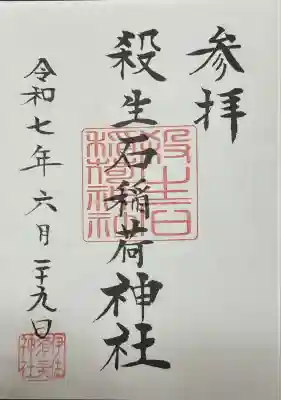 参拝
殺生石稲荷神社
殺生石
稲荷神社
令和七年六月二十九日
伊佐
須美
神社